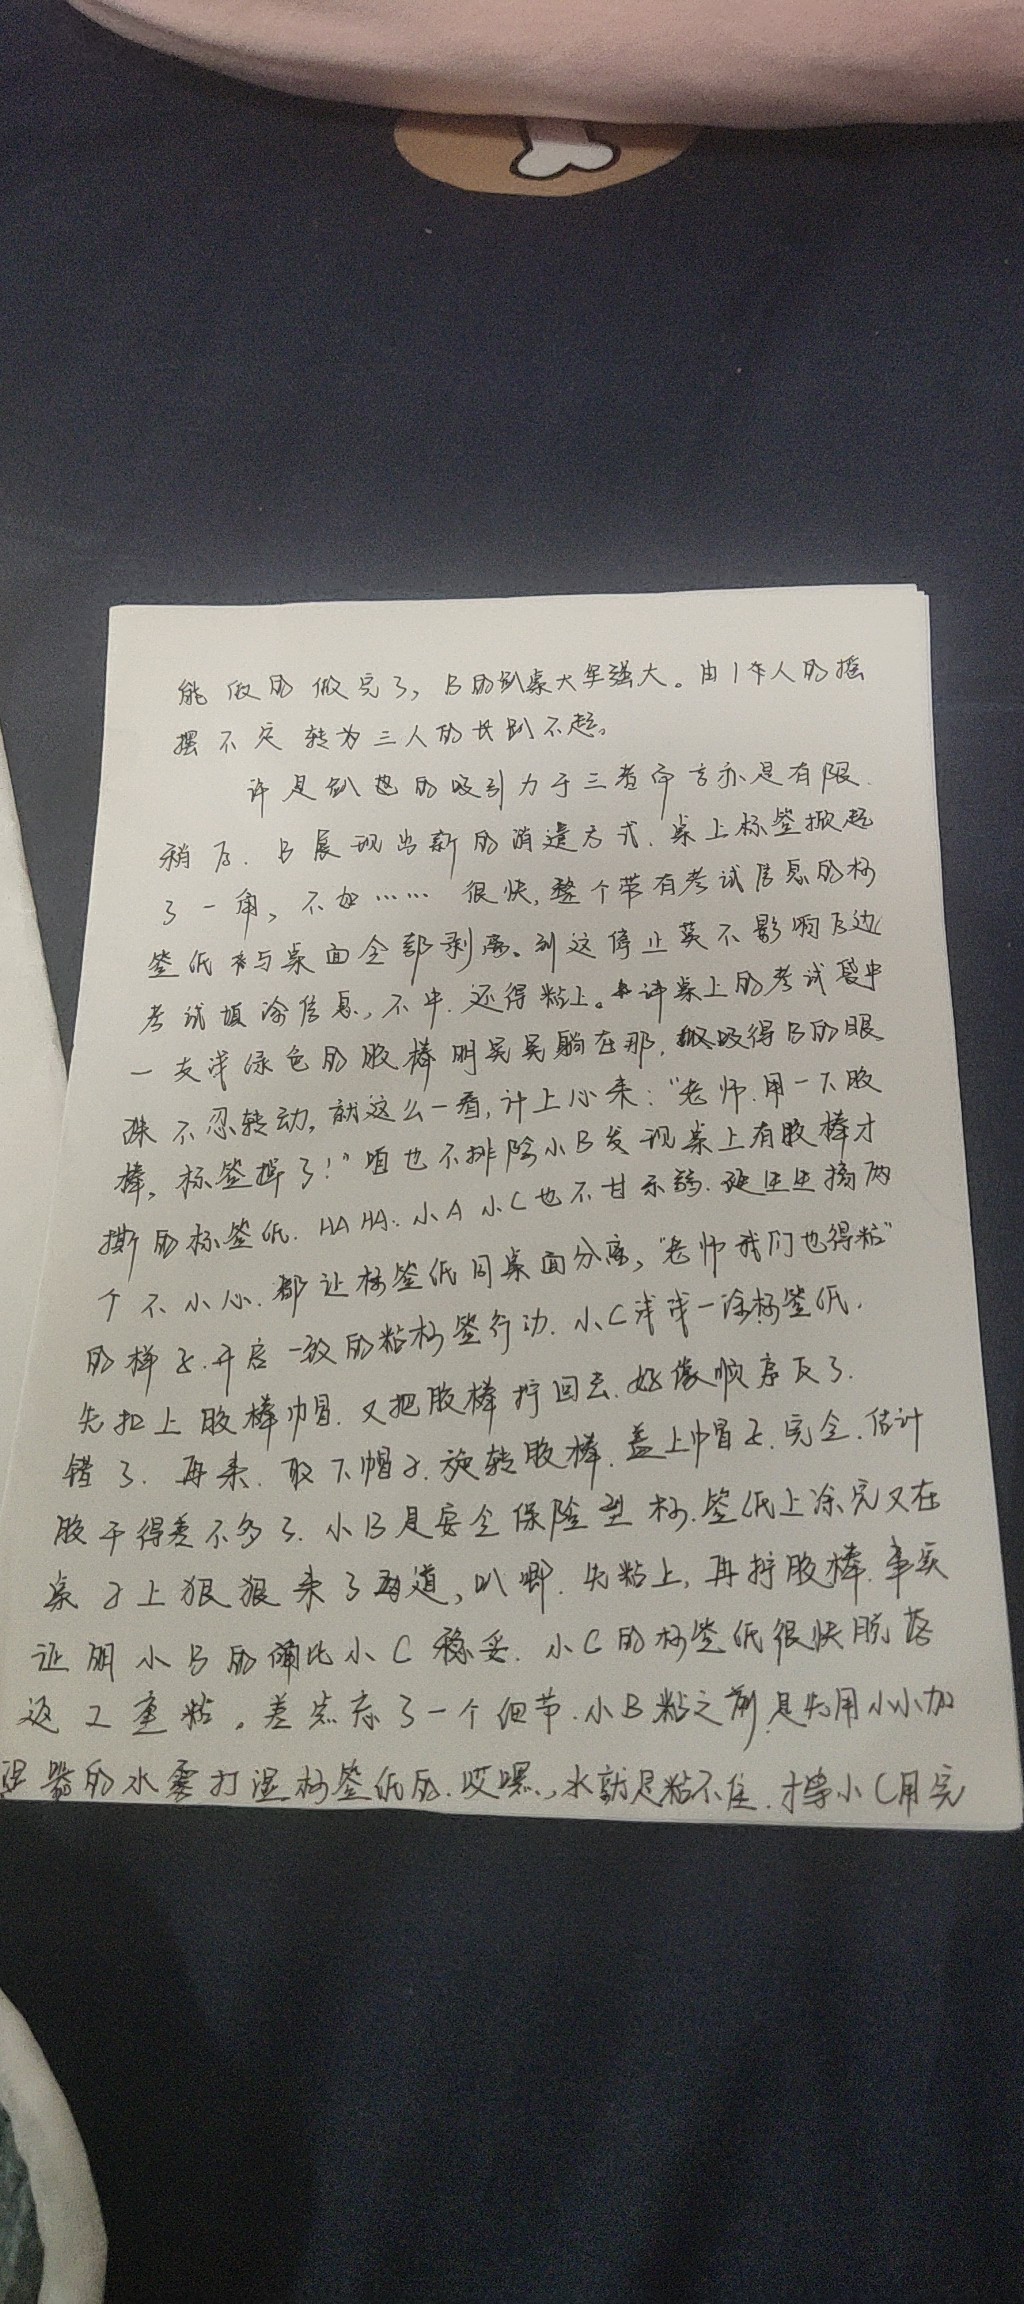 能做的做完了，B的趴桌大军强大。由1本人的摇
摆不定转为三人的长趴不起。
许是趴桌的吸引力于三者而言亦是有限.
稍后.B展现出新的消遣方式.桌上标签掀起
了一角，不如…… 很快,整个带有考试信息的标
签纸与桌面全部剥离。到这停止莫不影响后边
考试填涂信息,不中.还得粘上。讲桌上的考试袋中
一支浅绿色的胶棒明晃晃躺在那,吸得B的眼
珠不忍转动,就这么一看,计上心来:“老师.用一下胶
棒,标签掉了!”咱也不排除小B发现桌上有胶棒才
撕的标签纸.HAHA..小A小C也不甘示弱.硬生生搞两
个不小心.都让标签纸同桌面分离,“老师我们也得粘”
的样子.开启一致的粘标签行动.小C浅浅一涂标签纸.
先扣上胶棒帽.又把胶棒拧回去.好像顺序反了.
错了.再来.取下帽子.旋转胶棒.盖上帽子.完全.估计
胶干得差不多了.小B是安全保险型.标签纸上涂完又在
桌子上狠狠来了两道,叭唧.先粘上,再拧胶棒.事实
证明小B的确比小C稳妥.小C的标签纸很快脱落
返工重粘。差点忘了一个细节.小B粘之前是先用小小加
湿器的水雾打湿标签纸的.哎嘿,水就是粘不住.才等小C用完